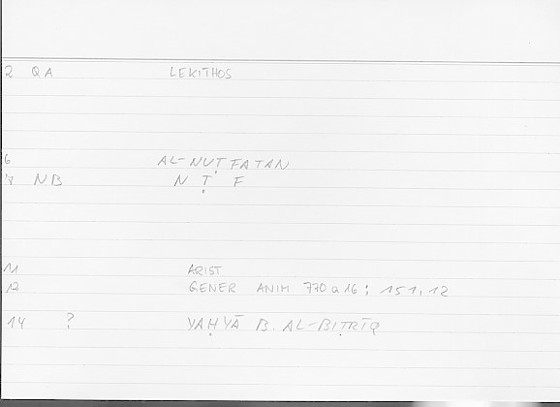 2 QA LEKITHOS
6 AL-NUṬFATAN
7 NB N Ṭ F
11 ARIST
12 GENER ANIM 770a16; 151,12
14 ? YAḤYĀ B. AL-BIṬRĪQ